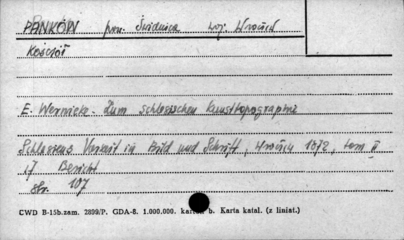 PANKÓW pow. Świdnica woj. Wrocław
Kościół
E. Wernicke. Zum schlesischen Kunsttopographie
Schlesiens Vorzeit in Bild und Schrift, Wrocław 1872, tom II
17 Bericht
str. 107
CWD B-15b.zam. 2899/P. GDA-8. 1.000.000. karton b. Karta katal. (z liniat.)